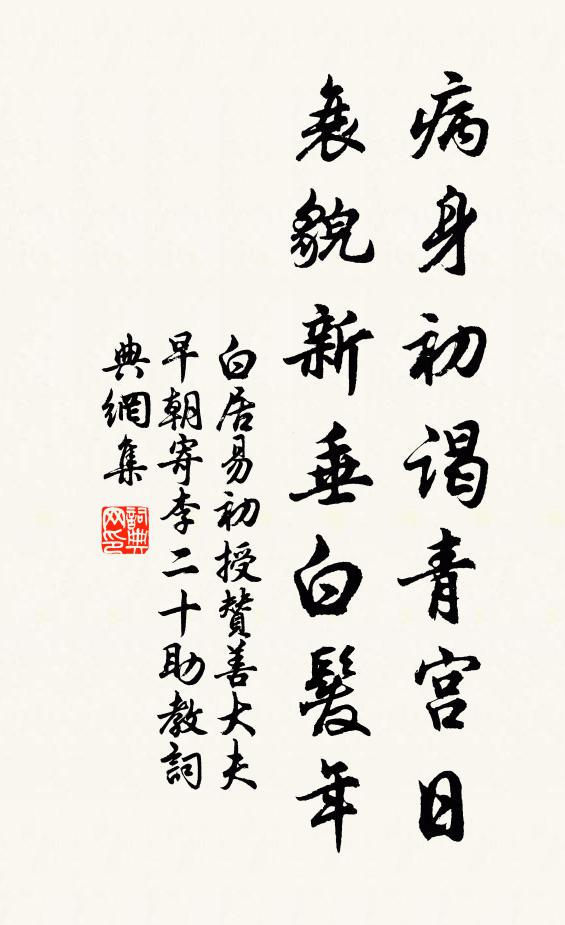 病身初谒青宫日
衰貌新垂白髮年
白居易初授贊善大夫
早朝寄李二十助教詞
典網集
詞典
网印